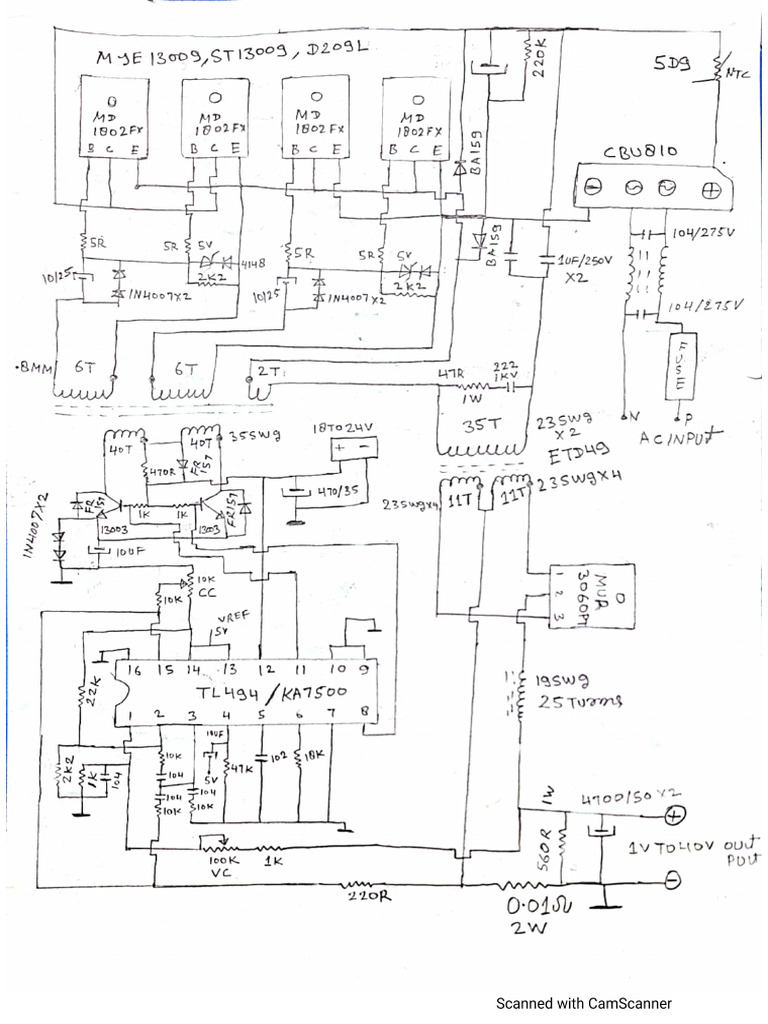 MJE13009, ST13009, D209L
220K
5D9
NTC
MD
1802FX
B C E
MD
1802FX
B C E
MD
1802FX
B C E
MD
1802FX
B C E
BA159
CBU810
104/275V
BA159
5R
5R
5V
4148
2K2
5R
5R
5V
2K2
1UF/250V
X2
10/25
1N4007X2
10/25
1N4007X2
104/275V
FUSE
.8MM
6T
6T
2T
47R
1W
222
1KV
N
P
AC INPUT
35T
23SWG
X2
ETD49
40T
40T
35SWG
18TO24V
+ -
470R
FR
157
470/35
23SWGX4
11T
11T
23SWGX4
1N4007X2
FR
157
1K
1K
FR157
13003
13003
10UF
10K
CC
10K
1
2
3
MUR
3060PT
VREF
5V
16 15 14 13 12 11 10 9
TL494/KA7500
1 2 3 4 5 6 7 8
22K
19SWG
25Turns
2K2
1K
104
10K
104
104
10K
104
10K
10UF
5V
47K
102
18K
100K
VC
1K
1W
560R
4700/50X2
+
1V TO 40V OUT
PUT
-
220R
0.01Ω
2W
Scanned with CamScanner